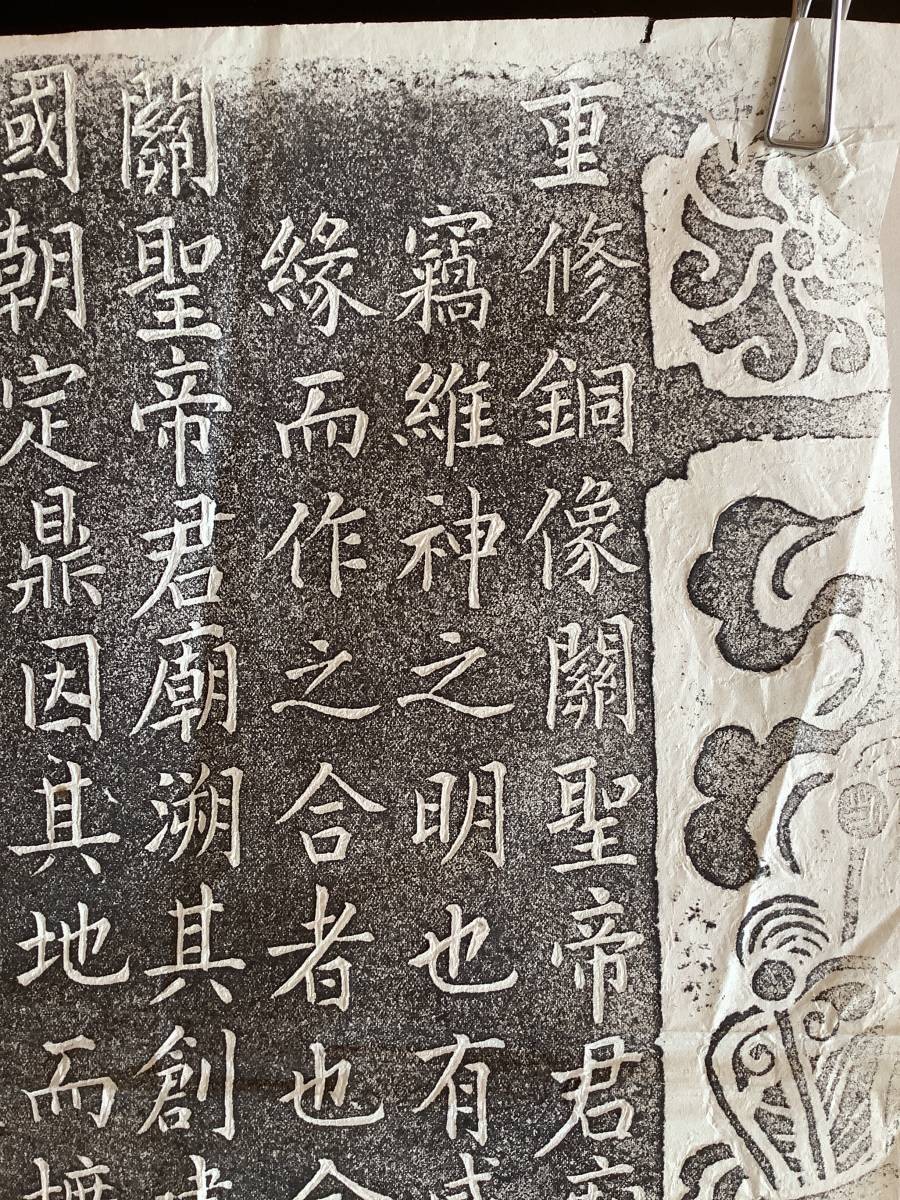 重修銅像關聖帝君
竊維神之明也有
緣而作之合者也
關聖帝君廟溯其創
國朝定鼎因其地而